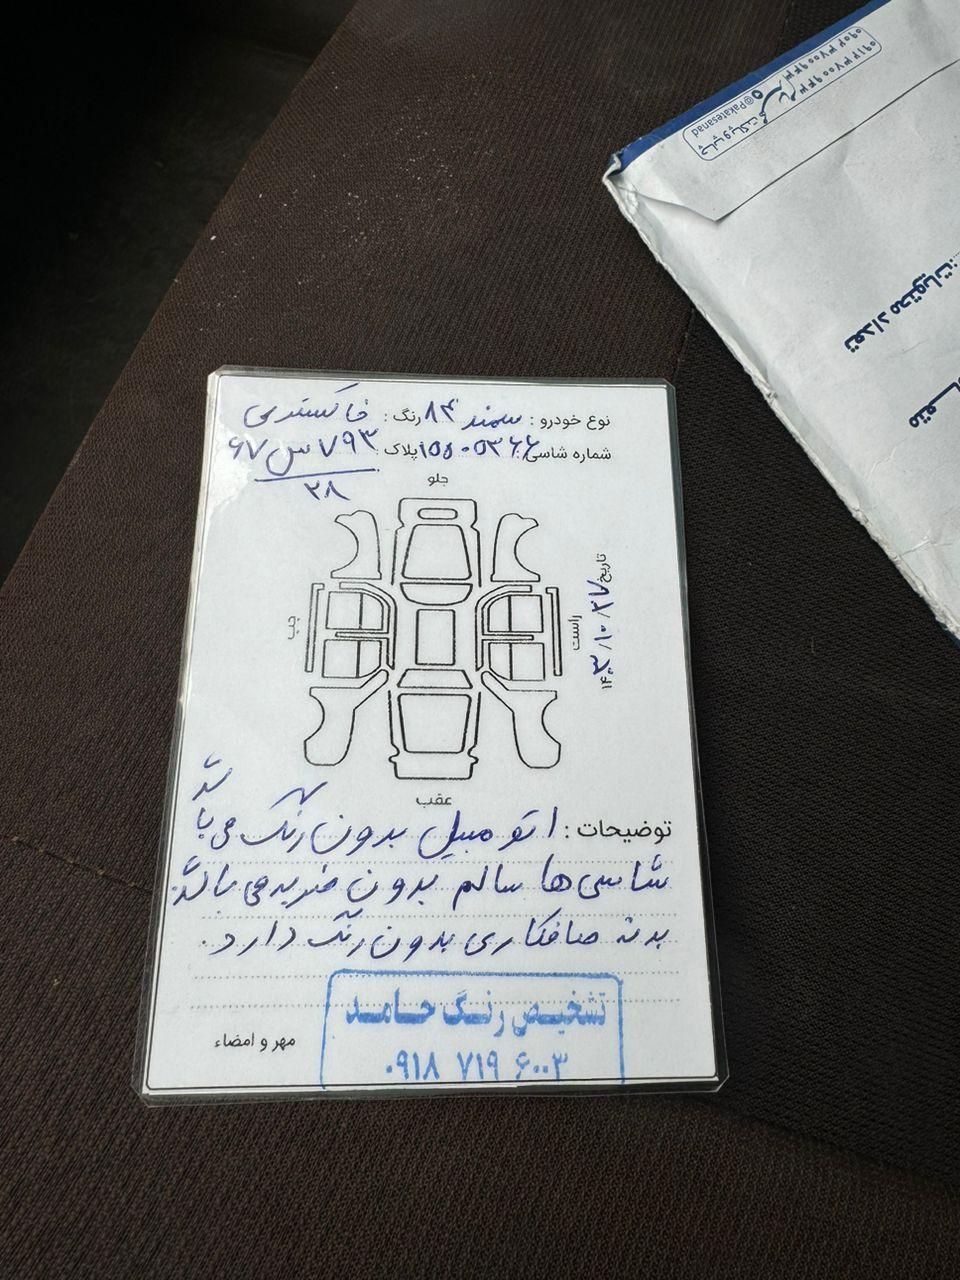 نوع خودرو : سمند ۸۴ رنگ : خاکستری
شماره شاسی : ۱۵۵۰۵۳۶۶ پلاک : ۷۹۳ س ۶۷
۲۸
جلو
چپ
راست
تاریخ ۱۴۰۳/۱۰/۲۷
عقب
توضیحات : اتومبیل بدون رنگ می باشد
شاسی ها سالم بدون ضربه می باشد
بدنه صافکاری بدون رنگ دارد.
مهر و امضاء
تشخیص رنگ حامد
۰۹۱۸ ۷۱۹ ۶۰۰۳
تعداد محتویات:
چاپ پاکت
@Pakatesanad
۰۹۱۲۳۷۰۰۹۴۳
۰۹۰۲۳۷۰۰۹۴۳